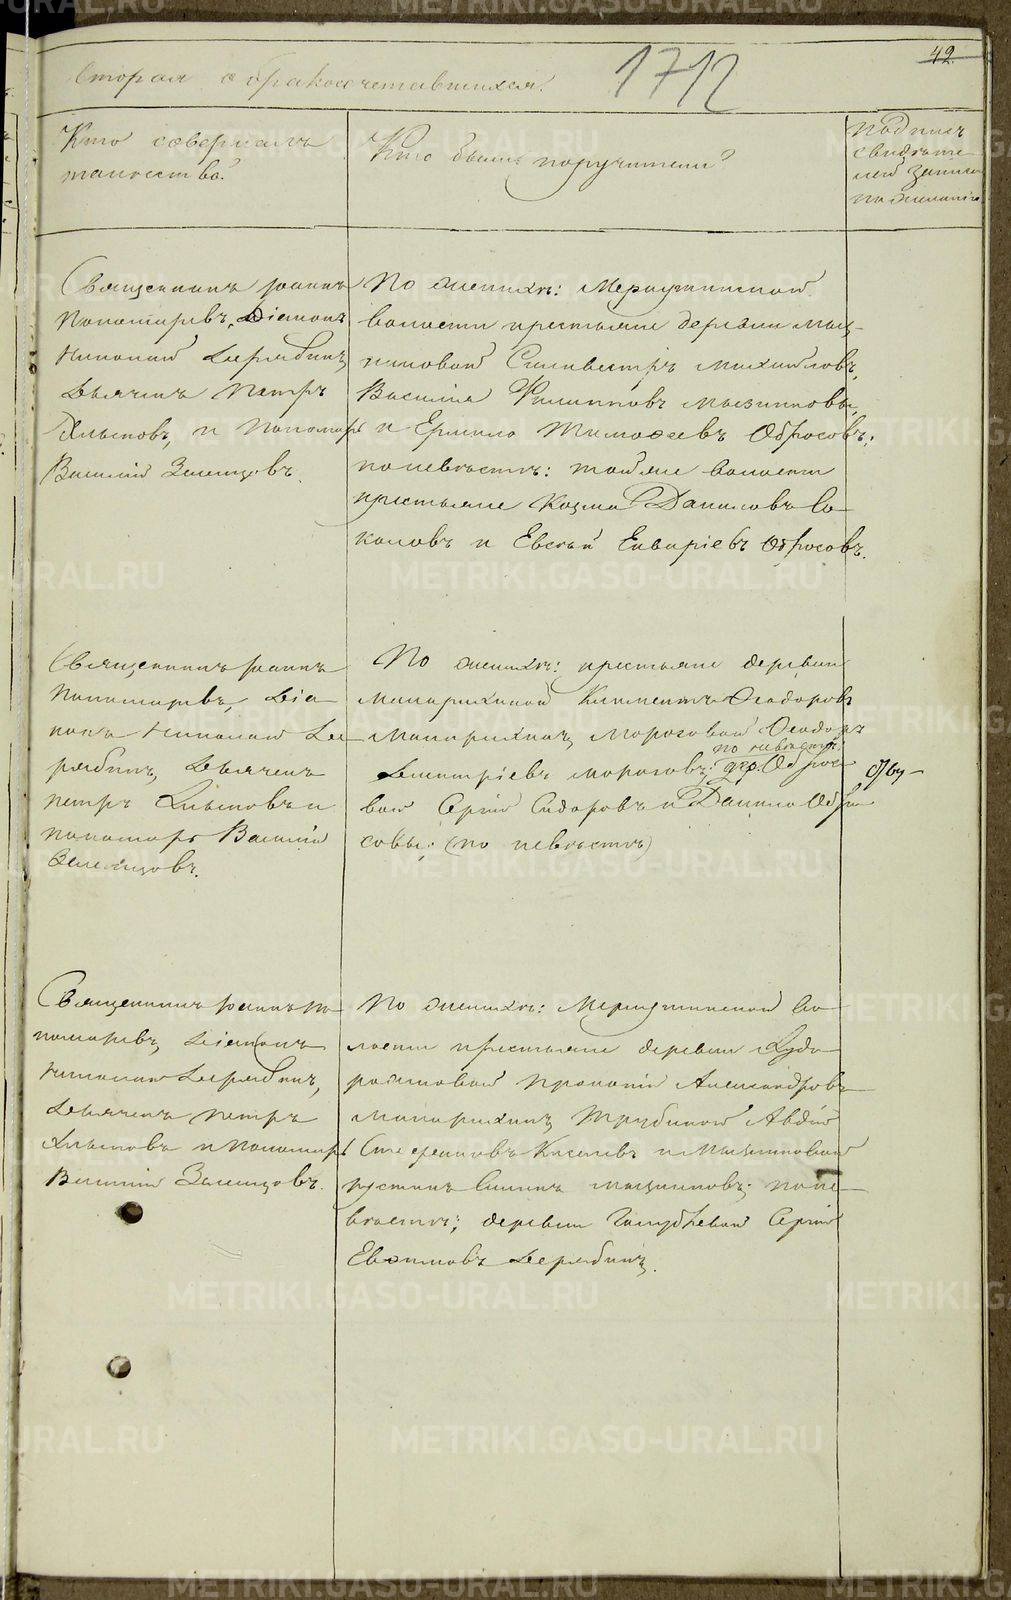 42
вторая о бракосочетавшихся.
1712
Кто совершалъ
таинство.
Кто были поручители?
подпись
свидѣте
лей записи
по желанію
Священникъ Іоаннъ
Пономаревъ, Діаконъ
Николай Дерябинъ,
Дьячекъ Петръ
Хлыновъ, и Пономарь
Василій Зеленцовъ.
По женихѣ: Меркушинской
волости крестьяне деревни Мыз-
никовой Сильвестръ Михайловъ,
Василій Филипповъ Мызниковы
и Ермило Тимофеевъ Обросовъ;
по невѣстѣ: той же волости
крестьяне Козма Даниловъ Со-
коловъ и Евсѣй Обросовъ.
Священникъ Іоаннъ
Пономаревъ, Діа-
конъ Николай Де-
рябинъ, Дьячекъ
Петръ Хлыновъ и
пономарь Василій
Зеленцовъ.
По женихѣ: крестьяне деревни
Махарихиной Климентъ Ѳеодоровъ
Махарихинъ, Морозовой Ѳеодоръ
по невѣстѣ:
Димитріевъ Морозовъ; дер. Обросо
вой Сергій Сидоровъ и Данило Обро
совы. (по невѣстѣ)
Священникъ Іоаннъ По
номаревъ, Діаконъ
Николай Дерябинъ,
Дьячекъ Петръ
Хлыновъ и Пономарь
Василій Зеленцовъ.
По женихѣ: Меркушинской во-
лости крестьяне деревни
Прокопій Александровъ
Махарихинъ, Трубиной Авдій
Стефановъ Киселевъ и Мызниковой
Іустинъ Мызниковъ; по не-
вѣстѣ; деревни Голубевой Сергій
Евфимовъ Дерябинъ.
METRIKI.GASO-URAL.RU